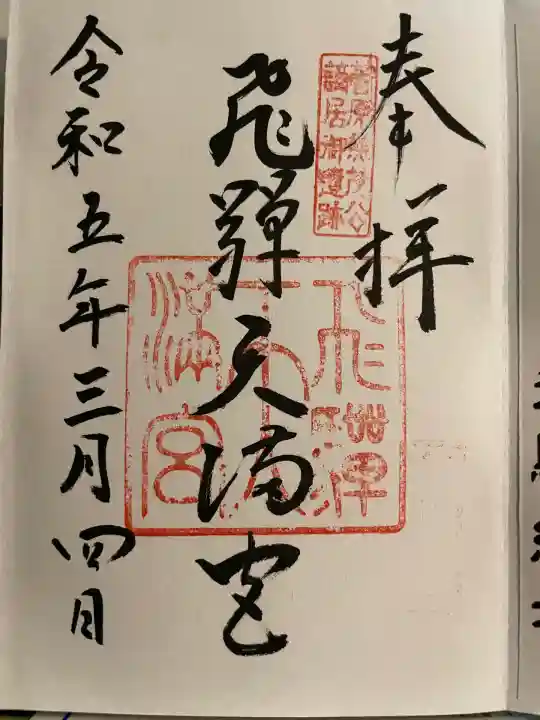 奉拝
菅原兼茂公
謫居御遺跡
飛騨天満宮
飛騨天満宮
令和五年三月四日